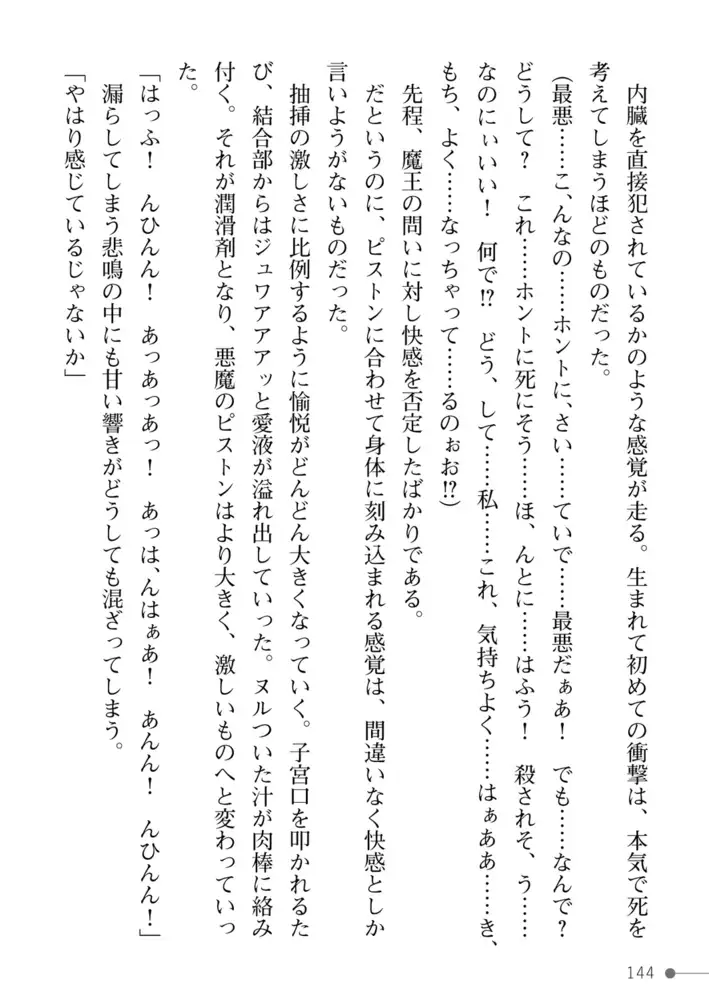 内臓を直接犯されているかのような感覚が走る。生まれて初めての衝撃は、本気で死を
考えてしまうほどのものだった。
（最悪……こ、んなの……ホントに、さい……ていで……最悪だぁあ！　でも……なんで？
どうして？　これ……ホントに死にそう……ほ、んとに……はふう！　殺されそ、う……
なのにぃいい！　何で!?　どう、して……私……これ、気持ちよく……はぁああ……き、
もち、よく……なっちゃって……るのぉお!?）
先程、魔王の問いに対し快感を否定したばかりである。
だというのに、ピストンに合わせて身体に刻み込まれる感覚は、間違いなく快感としか
言いようがないものだった。
抽挿の激しさに比例するように愉悦がどんどん大きくなっていく。子宮口を叩かれるた
び、結合部からはジュワアアアッと愛液が溢れ出していった。ヌルついた汁が肉棒に絡み
付く。それが潤滑剤となり、悪魔のピストンはより大きく、激しいものへと変わっていっ
た。
「はっふ！　んひんん！　あっあっあっ！　あっは、んはぁあ！　あんん！　んひんん！」
漏らしてしまう悲鳴の中にも甘い響きがどうしても混ざってしまう。
「やはり感じているじゃないか」
144